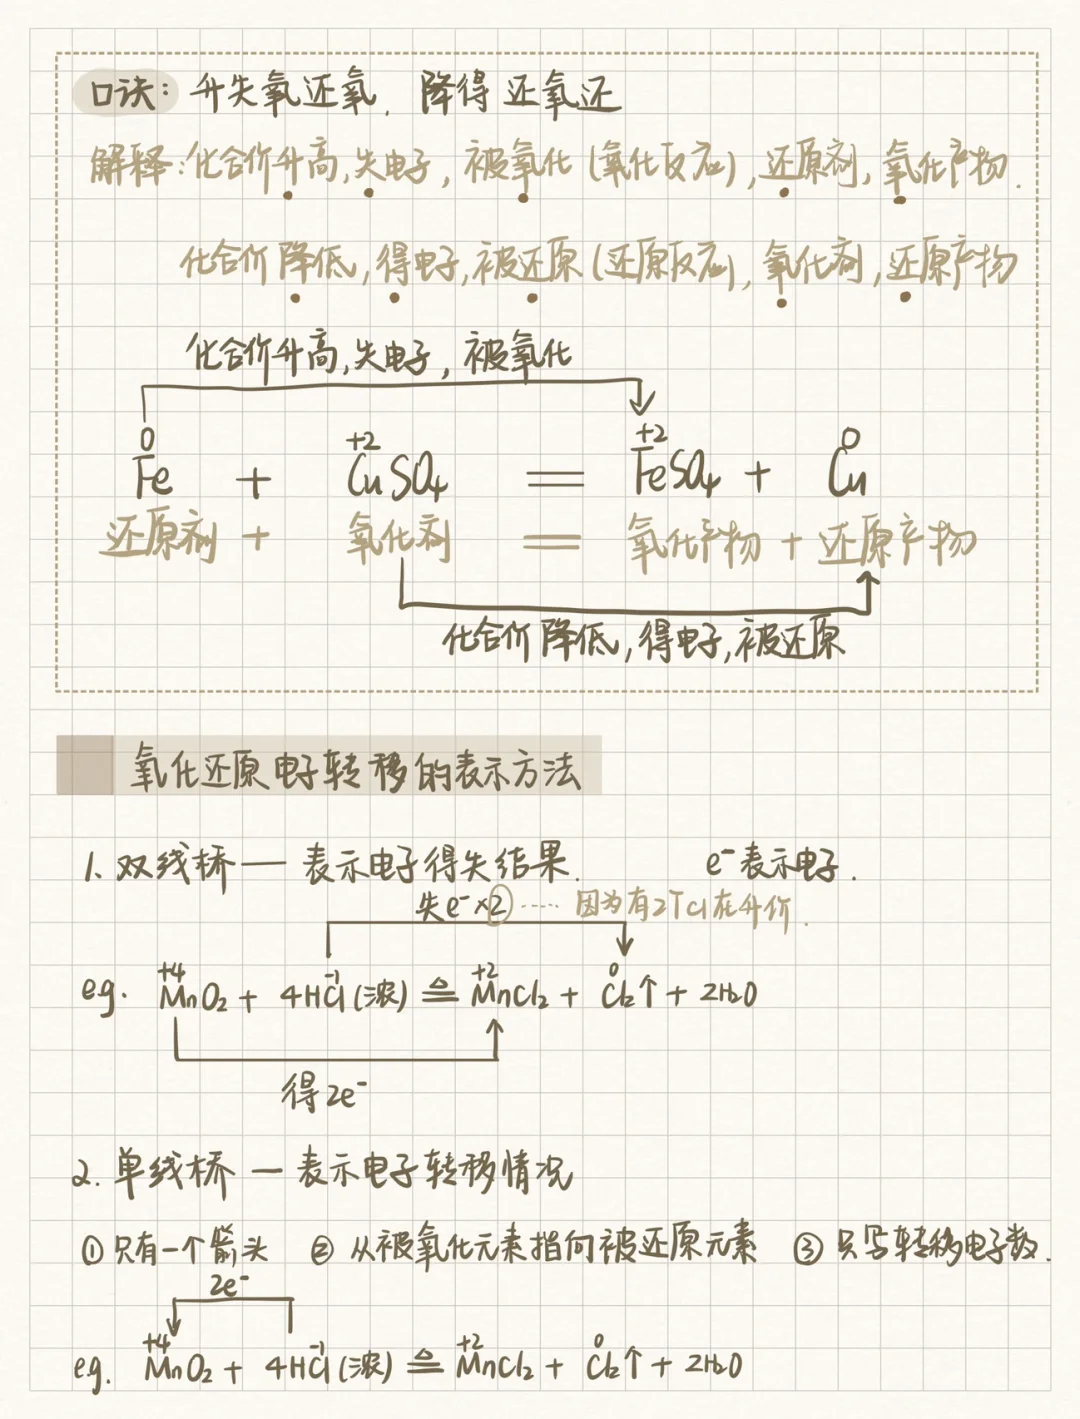 口诀: 升失氧还氧, 降得还氧还
解释: 化合价升高, 失电子, 被氧化 (氧化反应), 还原剂, 氧化产物.
化合价降低, 得电子, 被还原 (还原反应), 氧化剂, 还原产物
化合价升高, 失电子, 被氧化
0 +2 +2 0
Fe + CuSO₄ == FeSO₄ + Cu
还原剂 + 氧化剂 == 氧化产物 + 还原产物
化合价降低, 得电子, 被还原
氧化还原电子转移的表示方法
1. 双线桥 — 表示电子得失结果. e⁻表示电子.
失e⁻×2 ····· 因为有2个Cl在升价.
+4 -1 +2 0
eg. MnO₂ + 4HCl(浓) ≜ MnCl₂ + Cl₂↑ + 2H₂O
得2e⁻
2. 单线桥 — 表示电子转移情况
① 只有一个箭头 ② 从被氧化元素指向被还原元素 ③ 只写转移电子数.
2e⁻
+4 -1 +2 0
eg. MnO₂ + 4HCl(浓) ≜ MnCl₂ + Cl₂↑ + 2H₂O